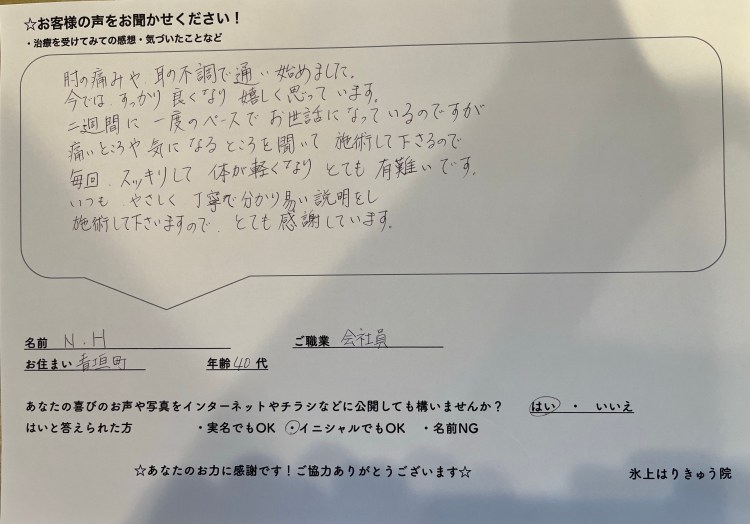 ☆お客様の声をお聞かせください！
・治療を受けてみての感想・気づいたことなど
肘の痛みや、耳の不調で通い始めました。
今では、すっかり良くなり嬉しく思っています。
二週間に一度のペースでお世話になっているのですが
痛いところや気になるところを聞いて施術して下さるので
毎回、スッキリして体が軽くなりとても有難いです。
いつも、やさしく丁寧で分かり易い説明をし
施術して下さいますので、とても感謝しています。
名前 N.H ご職業 会社員
お住まい 青垣町 年齢 40 代
あなたの喜びのお声や写真をインターネットやチラシなどに公開しても構いませんか？ はい ・ いいえ
はいと答えられた方 ・実名でもOK ・イニシャルでもOK ・名前NG
☆あなたのお力に感謝です！ご協力ありがとうございます☆ 氷上はりきゅう院